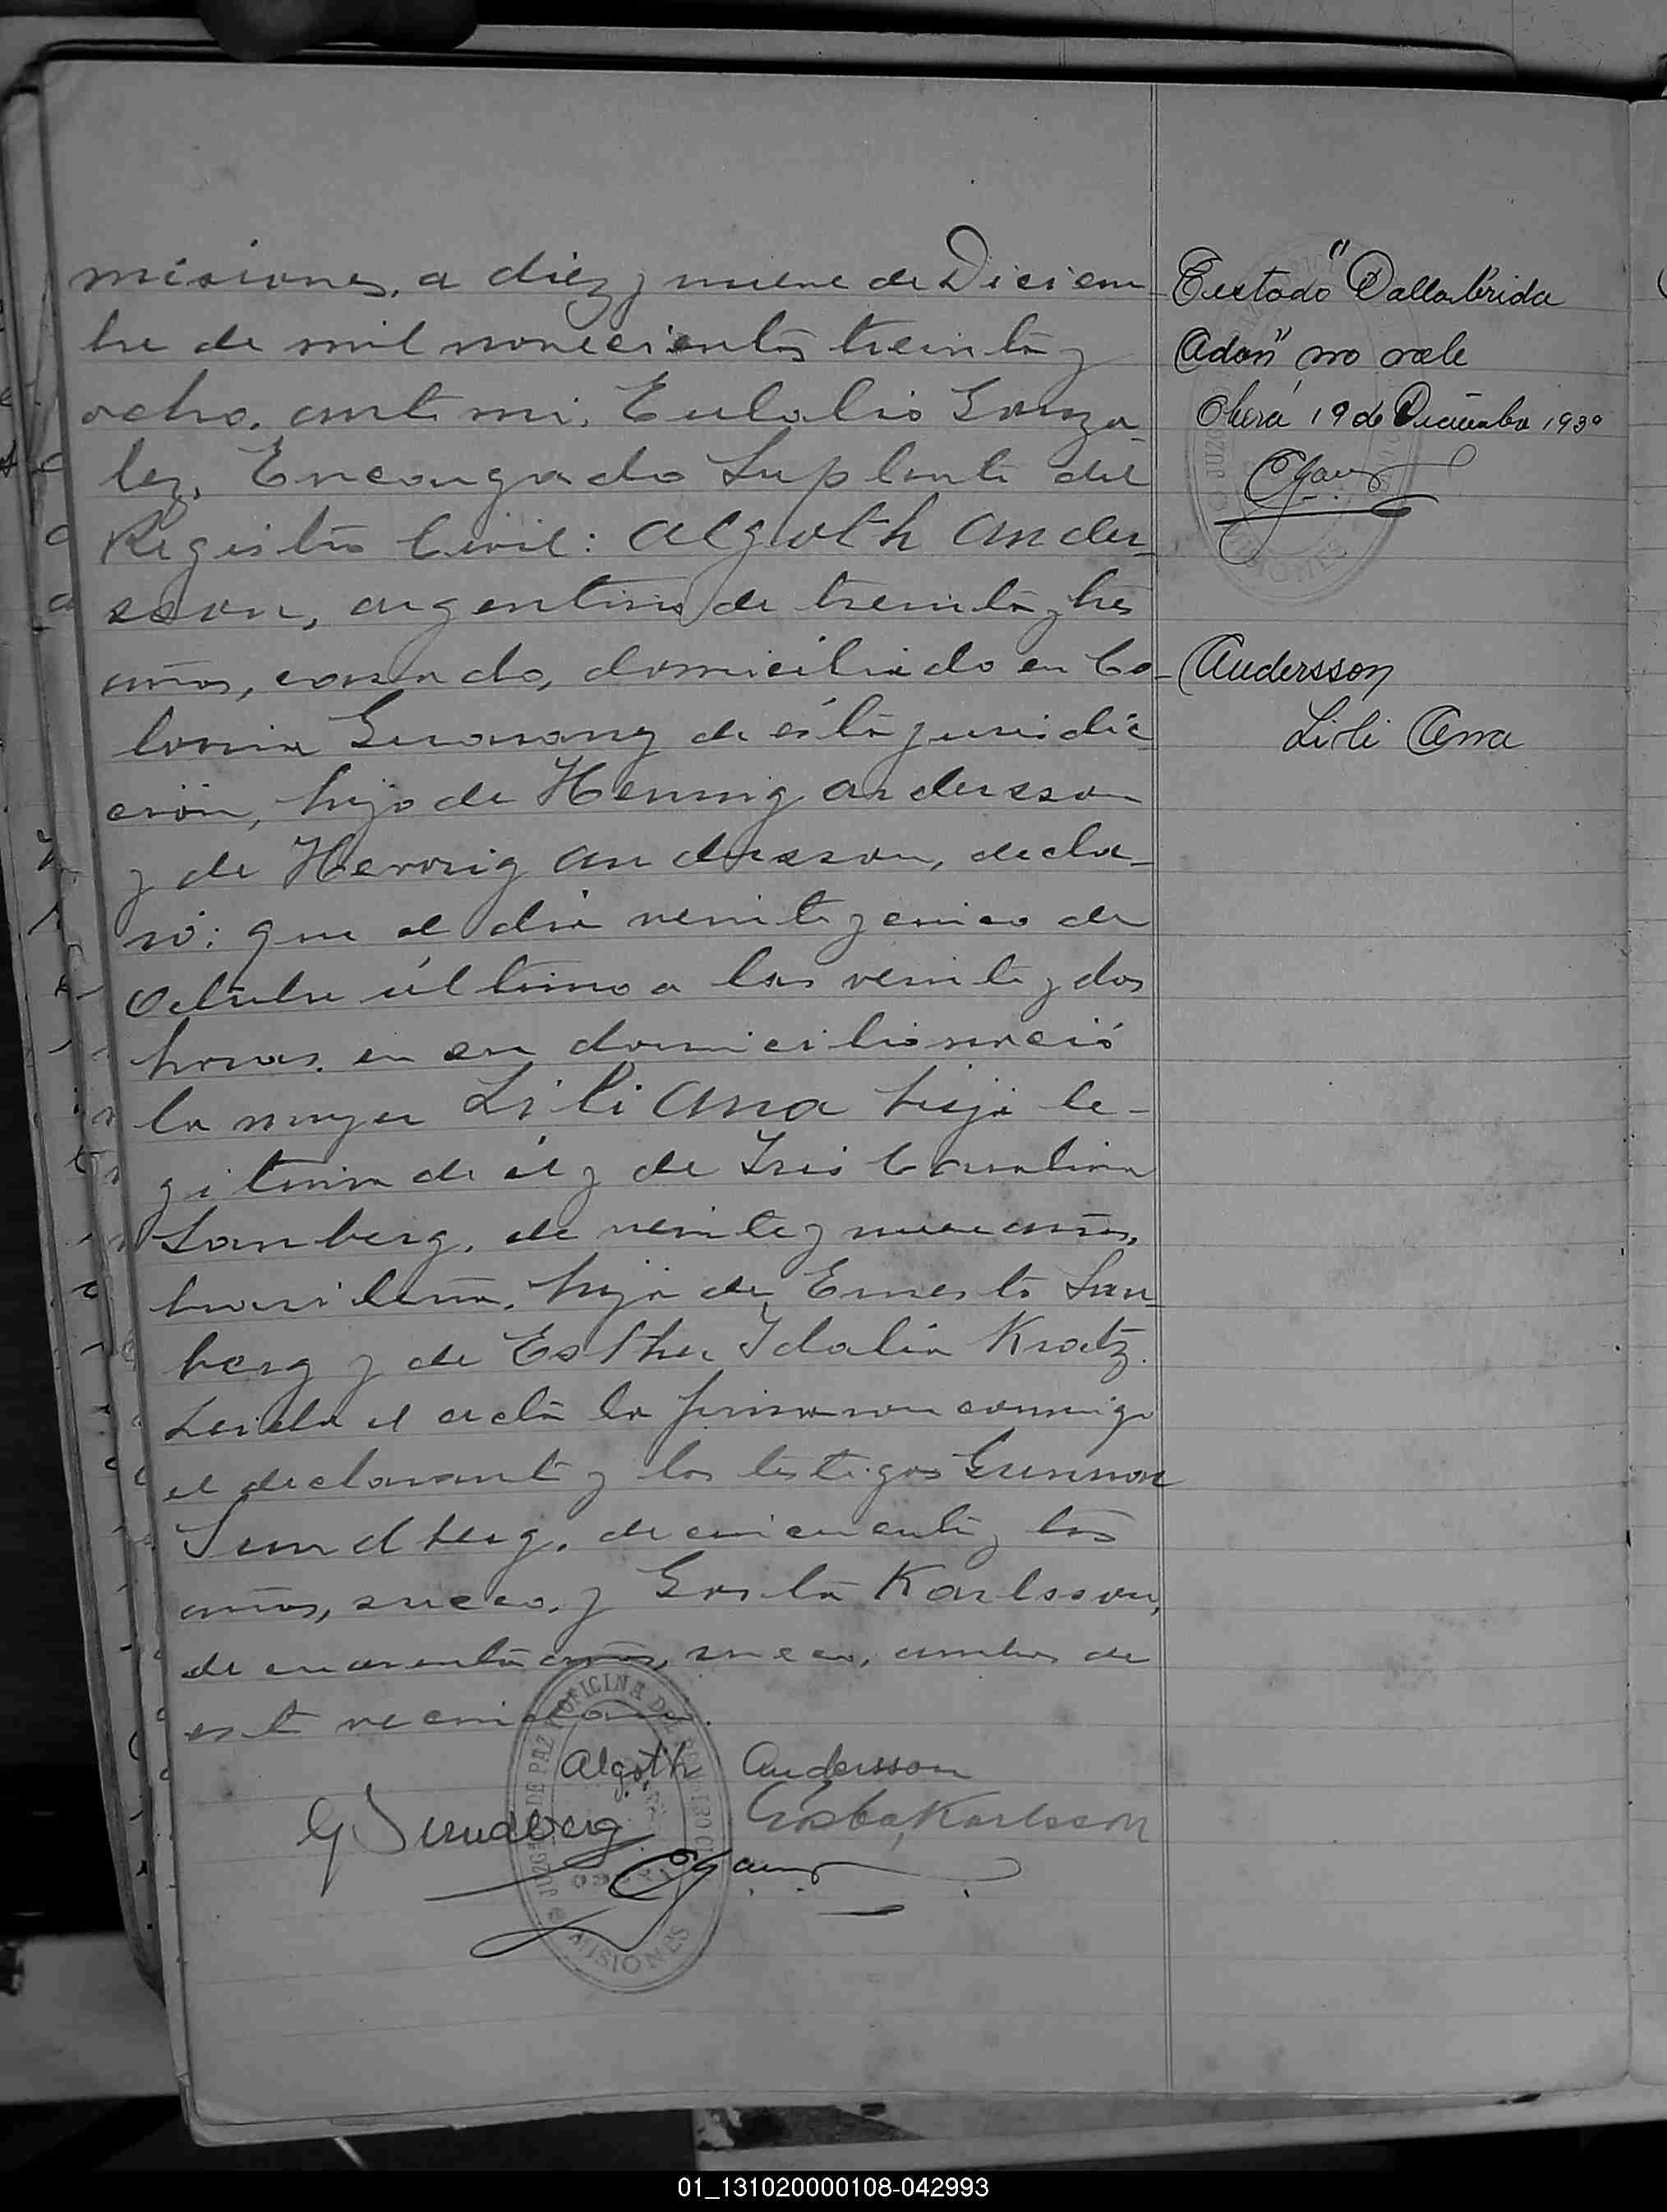 misiones, a diez y nueve de Diciem-
bre de mil novecientos treinta y
ocho, ante mi, Eulalio Gonza-
lez, Encargado Suplente del
Registro Civil: Algoth Ander-
sson, argentino de treinta y tres
años, casado, domiciliado en Co-
lonia Guarany de ésta jurisdic-
ción, hijo de Henning Andersson
y de Andersson, decla-
ró: que el dia veinte y cinco de
Octubre último a las veinte y dos
horas, en su domicilio nació
la mujer Lili Anna hija le-
gitima de él y de Iris Carolina
Sanberg, de veinte y nueve años,
brasileña, hija de Ernesto San-
berg y de Esther Idalia Kratz.
Leida el acta la firmaron conmigo
el declarante y los testigos Gunnar
Sundberg, de cincuenta y tres
años, sueco, y Gosta Karlsson,
de cuarenta años, sueco, ambos de
este vecindario.
Algoth Andersson
G Sundberg Gösta Karlsson
JUZGADO DE PAZ Y OFICINA DEL REGISTRO CIVIL
MISIONES
Testado "Dallabrida
Adan" no vale
Oberá 19 de Diciembre 193
Andersson
Lili Anna
01_131020000108-042993